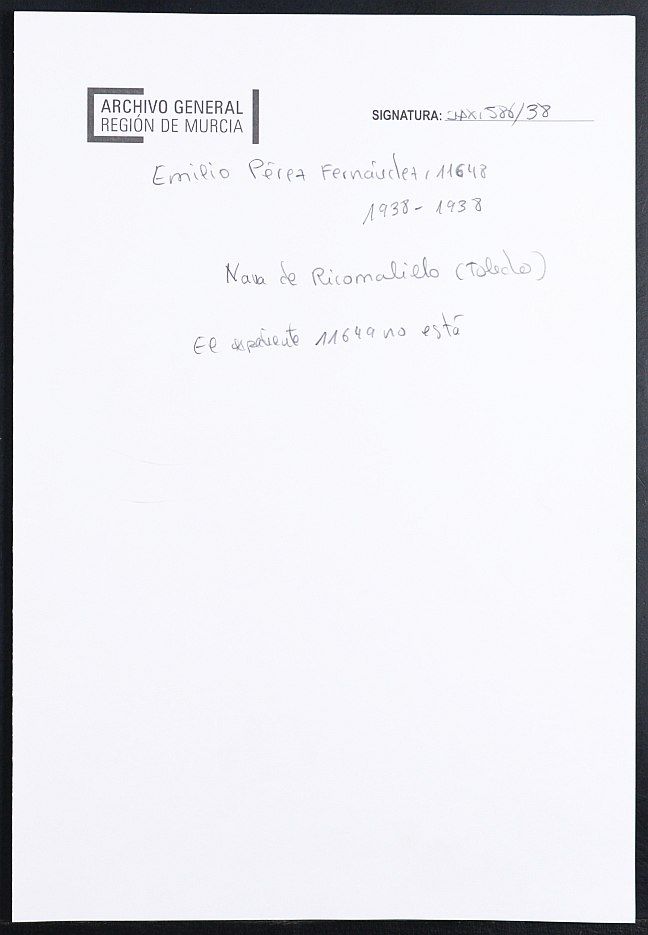 ARCHIVO GENERAL
REGIÓN DE MURCIA
SIGNATURA: JAX, 586/38
Emilio Pérez Fernández, 11648
1938 - 1938
Nava de Ricomalillo (Toledo)
El expediente 11649 no está